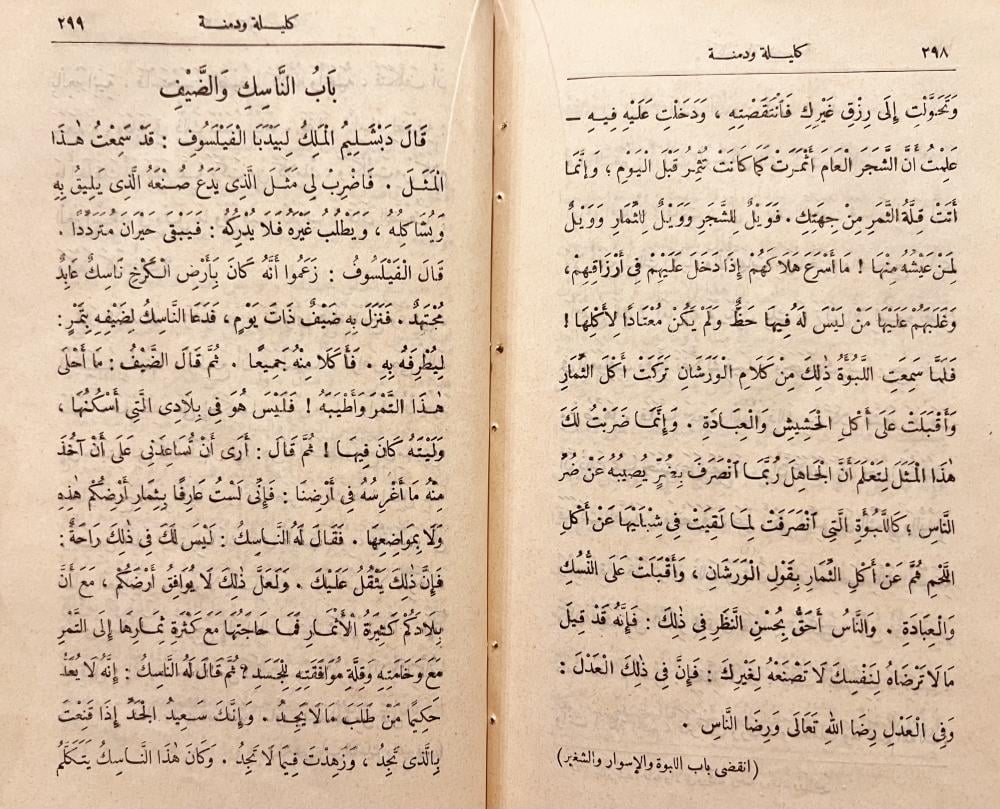 ٢٩٨ كليلة ودمنة
وَتَحَوَّلْتِ إِلَى رِزْقِ غَيْرِكِ فَٱنْتَقَصْتِهِ ، وَدَخَلْتِ عَلَيْهِ فِيهِ —
عَلِمْتُ أَنَّ الشَّجَرَ الْعَامَ أَثْمَرَتْ كَمَا كَانَتْ تُثْمِرُ قَبْلَ الْيَوْمِ ؛ وَإِنَّمَا
أَتَتْ قِلَّةُ الثَّمَرِ مِنْ جِهَتِكِ. فَوَيْلٌ لِلشَّجَرِ وَوَيْلٌ لِلثِّمَارِ وَوَيْلٌ
لِمَنْ عَيْشُهُ مِنْهَا ! مَا أَسْرَعَ هَلَاكَهُمْ إِذَا دَخَلَ عَلَيْهِمْ فِى أَرْزَاقِهِمْ،
وَغَلَبَهُمْ عَلَيْهَا مَنْ لَيْسَ لَهُ فِيهَا حَظٌّ وَلَمْ يَكُنْ مُعْتَادًا لِأَكْلِهَا !
فَلَمَّا سَمِعَتِ اللَّبُؤَةُ ذٰلِكَ مِنْ كَلَامِ الْوَرَشَانِ تَرَكَتْ أَكْلَ الثِّمَارِ
وَأَقْبَلَتْ عَلَى أَكْلِ الْحَشِيشِ وَالْعِبَادَةِ . وَإِنَّمَا ضَرَبْتُ لَكَ
هٰذَا الْمَثَلَ لِتَعْلَمَ أَنَّ الْجَاهِلَ رُبَّمَا ٱنْصَرَفَ بِضُرٍّ يُصِيبُهُ عَنْ ضُرِّ
النَّاسِ ؛ كَاللَّبُؤَةِ الَّتِى ٱنْصَرَفَتْ لِمَا لَقِيَتْ فِى شِبْلَيْهَا عَنْ أَكْلِ
اللَّحْمِ ثُمَّ عَنْ أَكْلِ الثِّمَارِ بِقَوْلِ الْوَرَشَانِ ، وَأَقْبَلَتْ عَلَى النُّسُكِ
وَالْعِبَادَةِ . وَالنَّاسُ أَحَقُّ بِحُسْنِ النَّظَرِ فِى ذٰلِكَ : فَإِنَّهُ قَدْ قِيلَ
مَا لَا تَرْضَاهُ لِنَفْسِكَ لَا تَصْنَعْهُ لِغَيْرِكَ : فَإِنَّ فِى ذٰلِكَ الْعَدْلَ :
وَفِى الْعَدْلِ رِضَا اللّٰهِ تَعَالَى وَرِضَا النَّاسِ .
(انقضى باب اللبوة والإسوار والشغبر)
كليلة ودمنة ٢٩٩
بَابُ النَّاسِكِ وَالضَّيْفِ
قَالَ دَبْشَلِيمُ الْمَلِكُ لِبَيْدَبَا الْفَيْلَسُوفِ : قَدْ سَمِعْتُ هٰذَا
الْمَثَلَ . فَٱضْرِبْ لِى مَثَلَ الَّذِى يَدَعُ صُنْعَهُ الَّذِى يَلِيقُ بِهِ
وَيُشَاكِلُهُ ، وَيَطْلُبُ غَيْرَهُ فَلَا يُدْرِكُهُ : فَيَبْقَى حَيْرَانَ مُتَرَدِّدًا .
قَالَ الْفَيْلَسُوفُ : زَعَمُوا أَنَّهُ كَانَ بِأَرْضِ الْكَرْخِ نَاسِكٌ عَابِدٌ
مُجْتَهِدٌ . فَنَزَلَ بِهِ ضَيْفٌ ذَاتَ يَوْمٍ ، فَدَعَا النَّاسِكُ لِضَيْفِهِ بِتَمْرٍ :
لِيُطْرِفَهُ بِهِ . فَأَكَلَا مِنْهُ جَمِيعًا . ثُمَّ قَالَ الضَّيْفُ : مَا أَحْلَى
هٰذَا التَّمْرَ وَأَطْيَبَهُ ! فَلَيْسَ هُوَ فِى بِلَادِى الَّتِى أَسْكُنُهَا ،
وَلَيْتَهُ كَانَ فِيهَا ! ثُمَّ قَالَ : أَرَى أَنْ تُسَاعِدَنِى عَلَى أَنْ آخُذَ
مِنْهُ مَا أَغْرِسُهُ فِى أَرْضِنَا : فَإِنِّى لَسْتُ عَارِفًا بِثِمَارِ أَرْضِكُمْ هٰذِهِ
وَلَا بِمَوَاضِعِهَا . فَقَالَ لَهُ النَّاسِكُ : لَيْسَ لَكَ فِى ذٰلِكَ رَاحَةٌ :
فَإِنَّ ذٰلِكَ يَثْقُلُ عَلَيْكَ . وَلَعَلَّ ذٰلِكَ لَا يُوَافِقُ أَرْضَكُمْ ، مَعَ أَنَّ
بِلَادَكُمْ كَثِيرَةُ الْأَثْمَارِ فَمَا حَاجَتُهَا مَعَ كَثْرَةِ ثِمَارِهَا إِلَى التَّمْرِ
مَعَ وَخَامَتِهِ وَقِلَّةِ مُوَافَقَتِهِ لِلْجَسَدِ؟ ثُمَّ قَالَ لَهُ النَّاسِكُ : إِنَّهُ لَا يُعَدُّ
حَكِيمًا مَنْ طَلَبَ مَا لَا يَجِدُ . وَإِنَّكَ سَعِيدُ الْجَدِّ إِذَا قَنِعْتَ
بِالَّذِى تَجِدُ ، وَزَهِدْتَ فِيمَا لَا تَجِدُ . وَكَانَ هٰذَا النَّاسِكُ يَتَكَلَّمُ